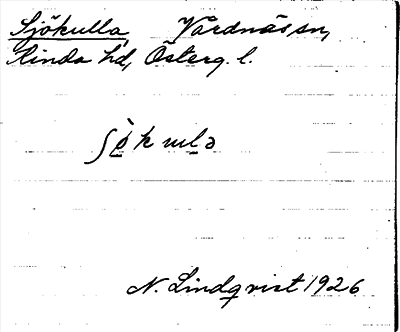 Sjökulla Vårdnäs sn,
Kinda hd, Österg. l.
ʃö̀kulə
N. Lindqvist 1926